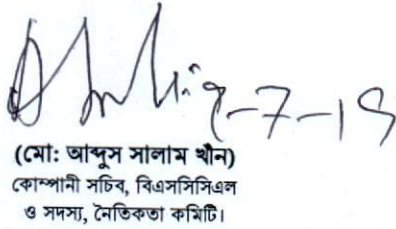 -7-19
(মো: আব্দুস সালাম খাঁন)
কোম্পানী সচিব, বিএসসিসিএল
ও সদস্য, নৈতিকতা কমিটি।